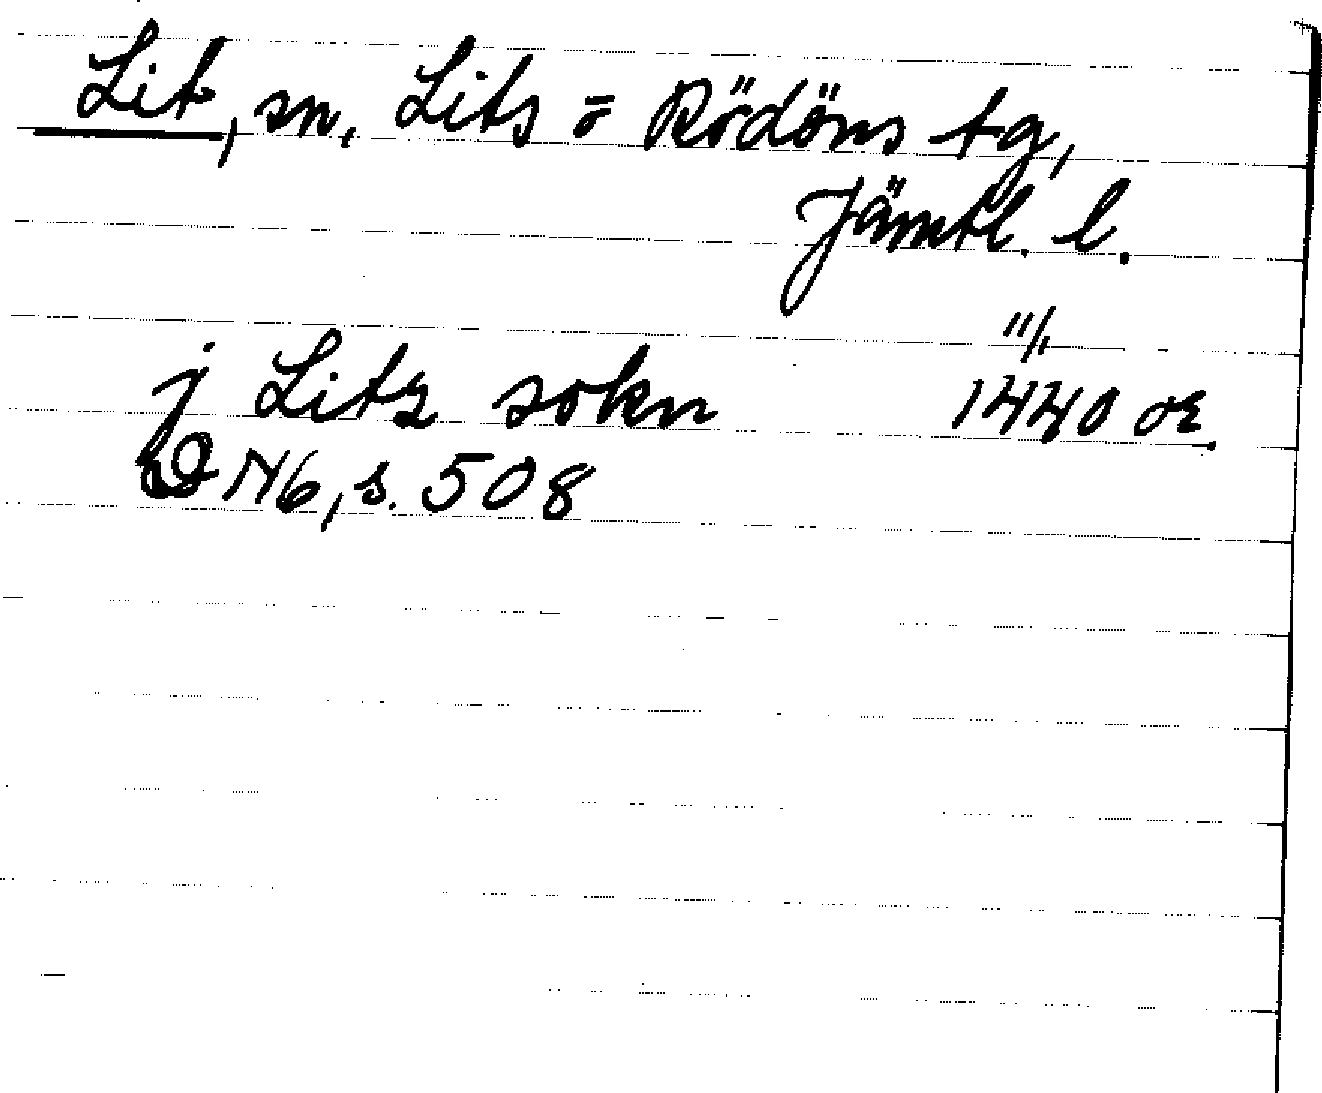 Lit, sn, Lits o Rödöns tg,
Jämtl. l.
11/1
j Litz sokn 1440 or.
N6, s. 508